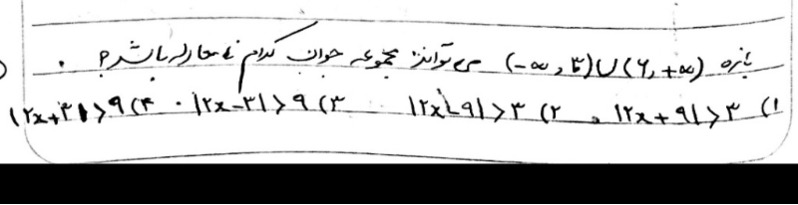 بازه (-∞, ۳)∪(۶, +∞) می‌تواند مجموعه جواب کدام نامعادله باشد؟
۱) |۲x+۹|>۳ ۲) |۲x-۹|>۳ ۳) |۲x-۳|>۹ ۴) |۲x+۳|>۹